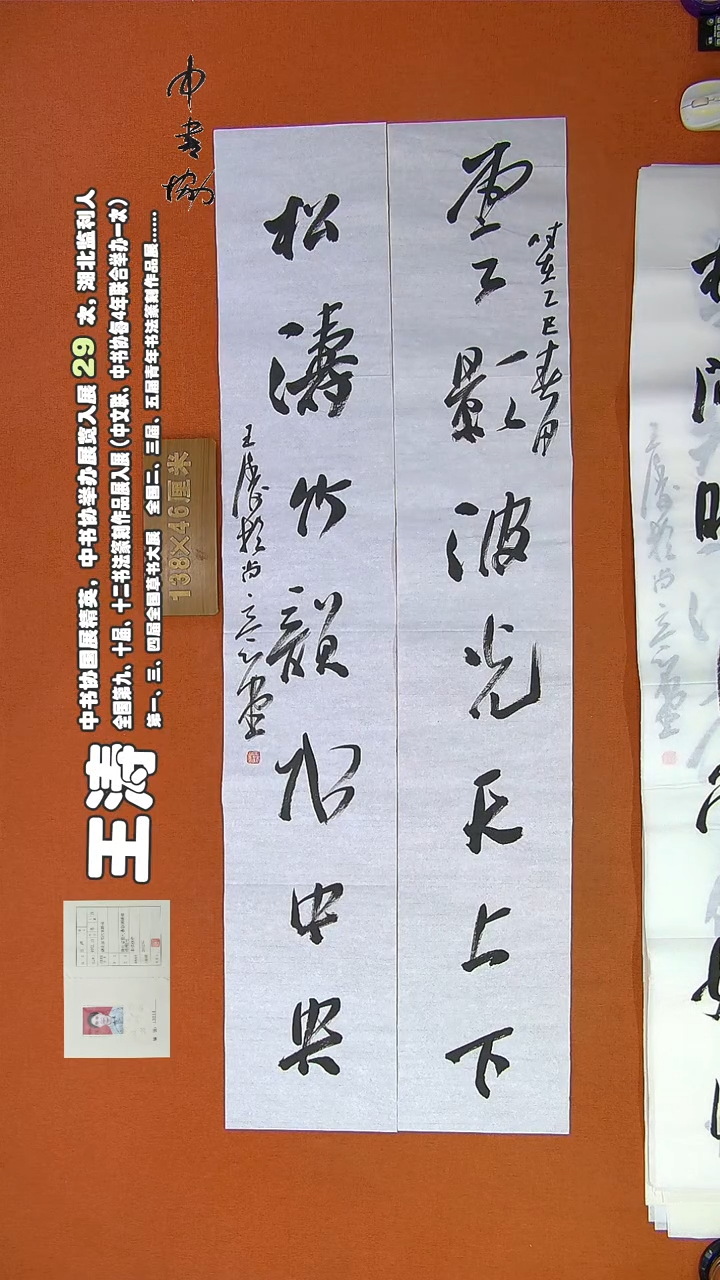 雲影波光天上下
时在乙巳春月
松濤竹韻水中央
王濤於尚
138×46厘米
中书协
王涛
中书协国展精英，中书协举办展览入展 29 次，湖北监利人
全国第九、十届、十二书法篆刻作品展入展（中文联、中书协每4年联合举办一次）
第一、三、四届全国草书大展 全国二、三届、五届青年书法篆刻作品展......